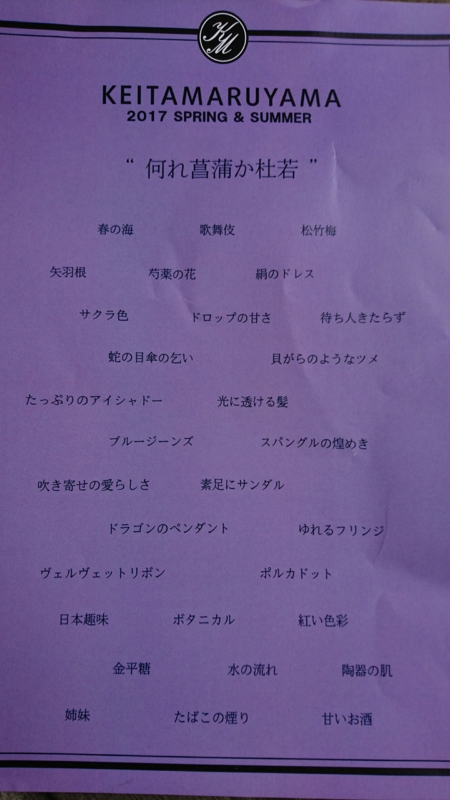 KM
KEITAMARUYAMA
2017 SPRING & SUMMER
“ 何れ菖蒲か杜若 ”
春の海 歌舞伎 松竹梅
矢羽根 芍薬の花 絹のドレス
サクラ色 ドロップの甘さ 待ち人きたらず
蛇の目傘の乞い 貝がらのようなツメ
たっぷりのアイシャドー 光に透ける髪
ブルージーンズ スパングルの煌めき
吹き寄せの愛らしさ 素足にサンダル
ドラゴンのペンダント ゆれるフリンジ
ヴェルヴェットリボン ポルカドット
日本趣味 ボタニカル 紅い色彩
金平糖 水の流れ 陶器の肌
姉妹 たばこの煙り 甘いお酒